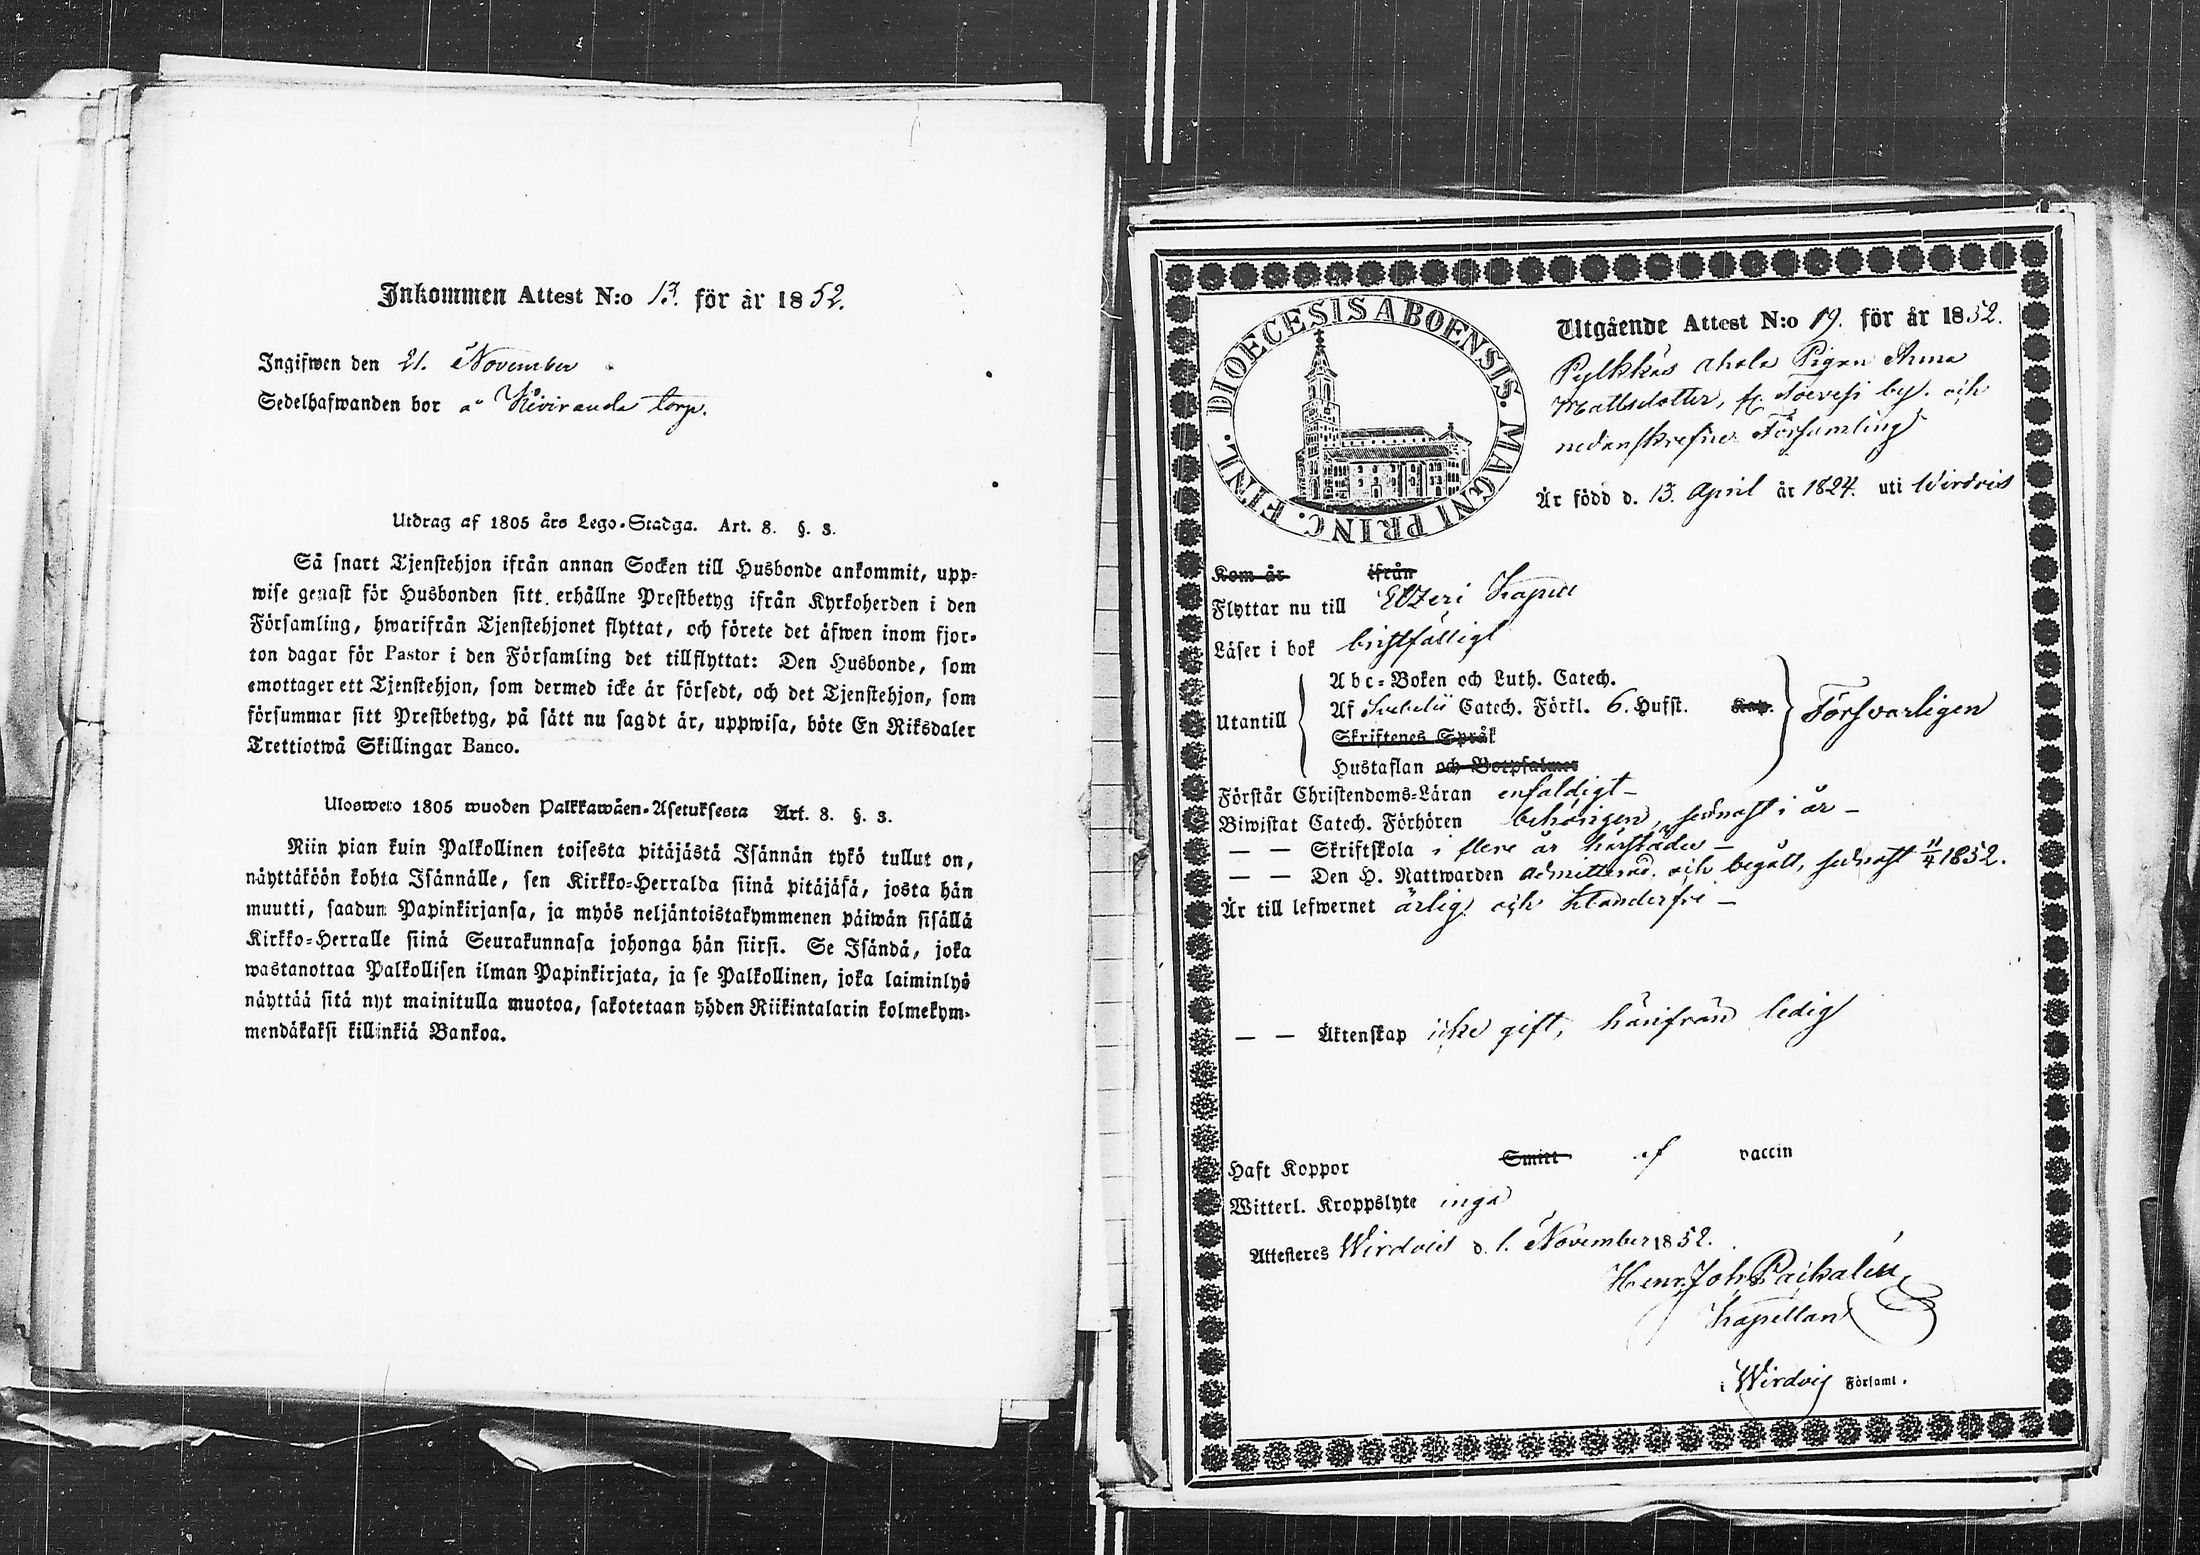 Inkommen Attest N:o 13. för år 1852.
Ingifwen den 21. November
Sedelhafwanden bor å Kiviranda torp.
Utdrag af 1805 års Lego-Stadga. Art. 8. §. 3.
Så snart Tjenstehjon ifrån annan Socken till Husbonde ankommit, upp-
wise genast för Husbonden sitt erhållne Prestbetyg ifrån Kyrkoherden i den
Församling, hwarifrån Tjenstehjonet flyttat, och förete det äfwen inom fjor-
ton dagar för Pastor i den Församling det tillflyttat: Den Husbonde, som
emottager ett Tjenstehjon, som dermed icke är försedt, och det Tjenstehjon, som
försummar sitt Prestbetyg, på sätt nu sagdt är, uppwisa, böte En Riksdaler
Trettiotwå Skillingar Banco.
Ulosweto 1805 wuoden Palkkawäen-Asetuksesta Art. 8. §. 3.
Niin pian kuin Palkollinen toisesta pitäjästä Isännän tykö tullut on,
näyttäköön kohta Isännälle, sen Kirkko-Herralda siinä pitäjäsä, josta hän
muutti, saadun Papinkirjansa, ja myös neljäntoistakymmenen päiwän sisällä
Kirkko-Herralle siinä Seurakunnasa johonga hän siirsi. Se Isändä, joka
wastanottaa Palkollisen ilman Papinkirjata, ja se Palkollinen, joka laiminlyö
näyttää sitä nyt mainitulla muotoa, sakotetaan yhden Riikintalarin kolmekym-
mendäkaksi killinkiä Bankoa.
DIOECESIS ABOENSIS. MAGNI PRINC. FINL.
Utgående Attest N:o 19. för år 1852.
Pylkkäs Pigan Anna
Mattsdotter, fr. by. och
nedanskrefne Församling
Är född d. 13. April år 1824. uti Wirdois
Kom år ifrån
Flyttar nu till Etzeri Kapell
Läser i bok bristfälligt
Abc-Boken och Luth. Catech.
Utantill Af Svebelii Catech. Förkl. 6. Hufst. Kap. Försvarligen
Skriftenes Språk
Hustaflan och Botpsalmer
Förstår Christendoms-Läran enfaldigt –
Biwistat Catech. Förhören behörigen, sednast i år –
— — Skriftskola i flere år härstädes –
— — Den H. Nattwarden admitterad, och begått, sednast 11/4 1852.
Är till lefwernet ärlig och klanderfri –
— — Äktenskap icke gift, härifrån ledig
Haft Koppor Smitt af vaccin
Witterl. Kroppslyte inga
Attesteres Wirdois d. 1. November 1852.
Henr. Joh.
Kapellan
i Wirdois Församl.